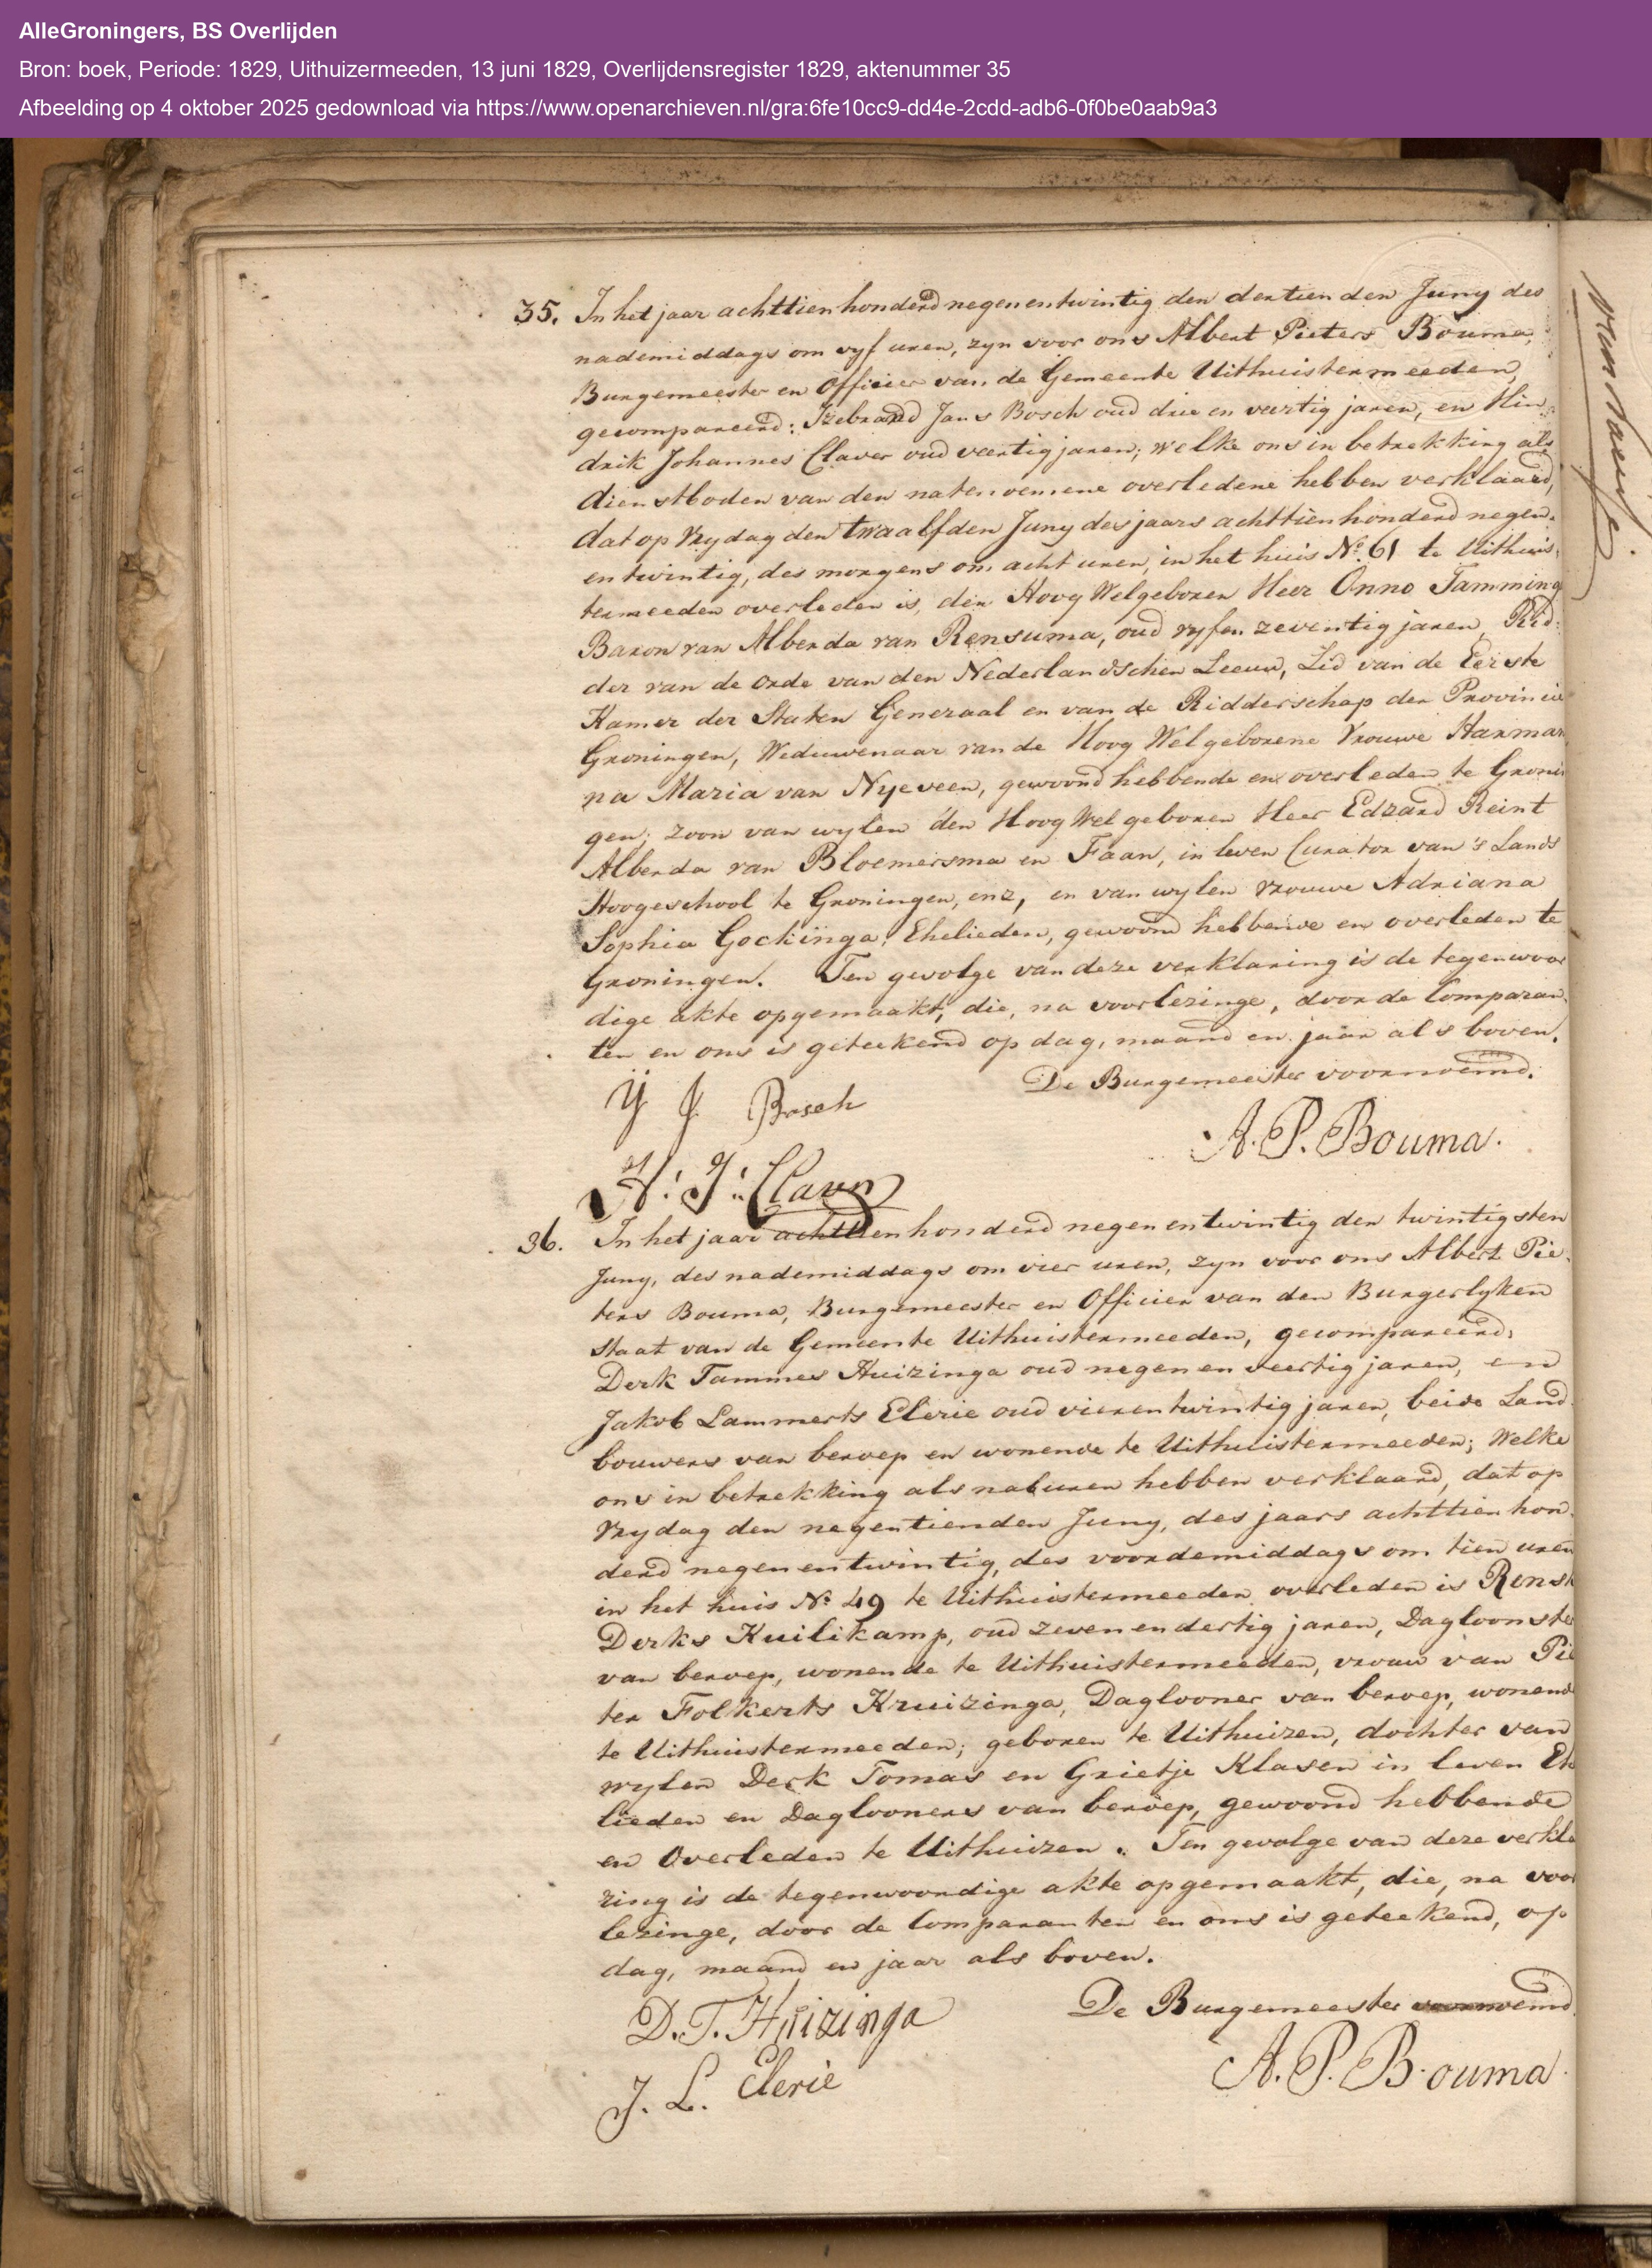 AlleGroningers, BS Overlijden
Bron: boek, Periode: 1829, Uithuizermeeden, 13 juni 1829, Overlijdensregister 1829, aktenummer 35
Afbeelding op 4 oktober 2025 gedownload via https://www.openarchieven.nl/gra:6fe10cc9-dd4e-2cdd-adb6-0f0be0aab9a3
35. In het jaar achttienhonderd negenentwintig den dertienden Juny des
nademiddags om vyf uren, zyn voor ons Albert Pieters Bouma,
Burgemeester en Officier van de Gemeente Uithuistermeeden,
gecompareerd: Izebrand Jans Bosch oud drie en veertig jaren, en Hin
drik Johannes Claver oud veertig jaren; welke ons in betrekking als
dienstboden van den natenoemene overledene hebben verklaard,
dat op Vrydag den twaalfden Juny des jaars achttienhonderd negen
en twintig, des morgens om acht uren, in het huis No. 61 te Uithuis
termeeden overleden is, den Hoog Welgeboren Heer Onno Tamming
Baron van Alberda van Rensuma, oud vyf en zeventig jaren, Rid
der van de orde van den Nederlandschen Leeuw, Lid van de Eerste
Kamer der Staten Generaal en van de Ridderschap der Provincie
Groningen, Weduwenaar van de Hoog Welgeborene Vrouwe Harman
na Maria van Nyeveen, gewoond hebbende en overleden te Gronin
gen; zoon van wylen den Hoog Welgeboren Heer Edzard Reint
Alberda van Bloemersma en Faan, in leven Curator van 's Lands
Hoogeschool te Groningen, enz, en van wylen vrouwe Adriana
Sophia Gockinga, Ehelieden, gewoond hebbende en overleden te
Groningen. Ten gevolge van deze verklaring is de tegenwoor
dige akte opgemaakt, die, na voorlezinge, door de Comparan
ten en ons is geteekend op dag, maand en jaar als boven.
De Burgemeester voornoemd.
Y J Bosch
A. P. Bouma.
H: J: Claver
36. In het jaar achttienhonderd negenentwintig den twintigsten
Juny, des nademiddags om vier uren, zyn voor ons Albert Pie
ters Bouma, Burgemeester en Officier van den Burgerlyken
Staat van de Gemeente Uithuistermeeden, gecompareerd,
Derk Tammes Huizinga oud negen en veertig jaren, en
Jakob Lammerts Clerie oud vierentwintig jaren, beide Land
bouwers van beroep en wonende te Uithuistermeeden; Welke
ons in betrekking als naburen hebben verklaard, dat op
Vrydag den negentienden Juny, des jaars achttienhon
derd negenentwintig, des voordemiddags om tien uren
in het huis No. 49 te Uithuistermeeden overleden is Rensk
Derks Kuilikamp, oud zeven en dertig jaren, Dagloonster
van beroep, wonende te Uithuistermeeden, vrouw van Pie
ter Folkerts Kruizinga, Daglooner van beroep, wonende
te Uithuistermeeden; geboren te Uithuizen, dochter van
wylen Derk Tomas en Grietje Klasen in leven Ehe
lieden en Daglooners van beroep, gewoond hebbende
en Overleden te Uithuizen. Ten gevolge van deze verkla
ring is de tegenwoordige akte opgemaakt, die, na voor
lezinge, door de Comparanten en ons is geteekend, op
dag, maand en jaar als boven.
De Burgemeester voornoemd
D. T. Huizinga
A. P. Bouma
J. L. Clerie